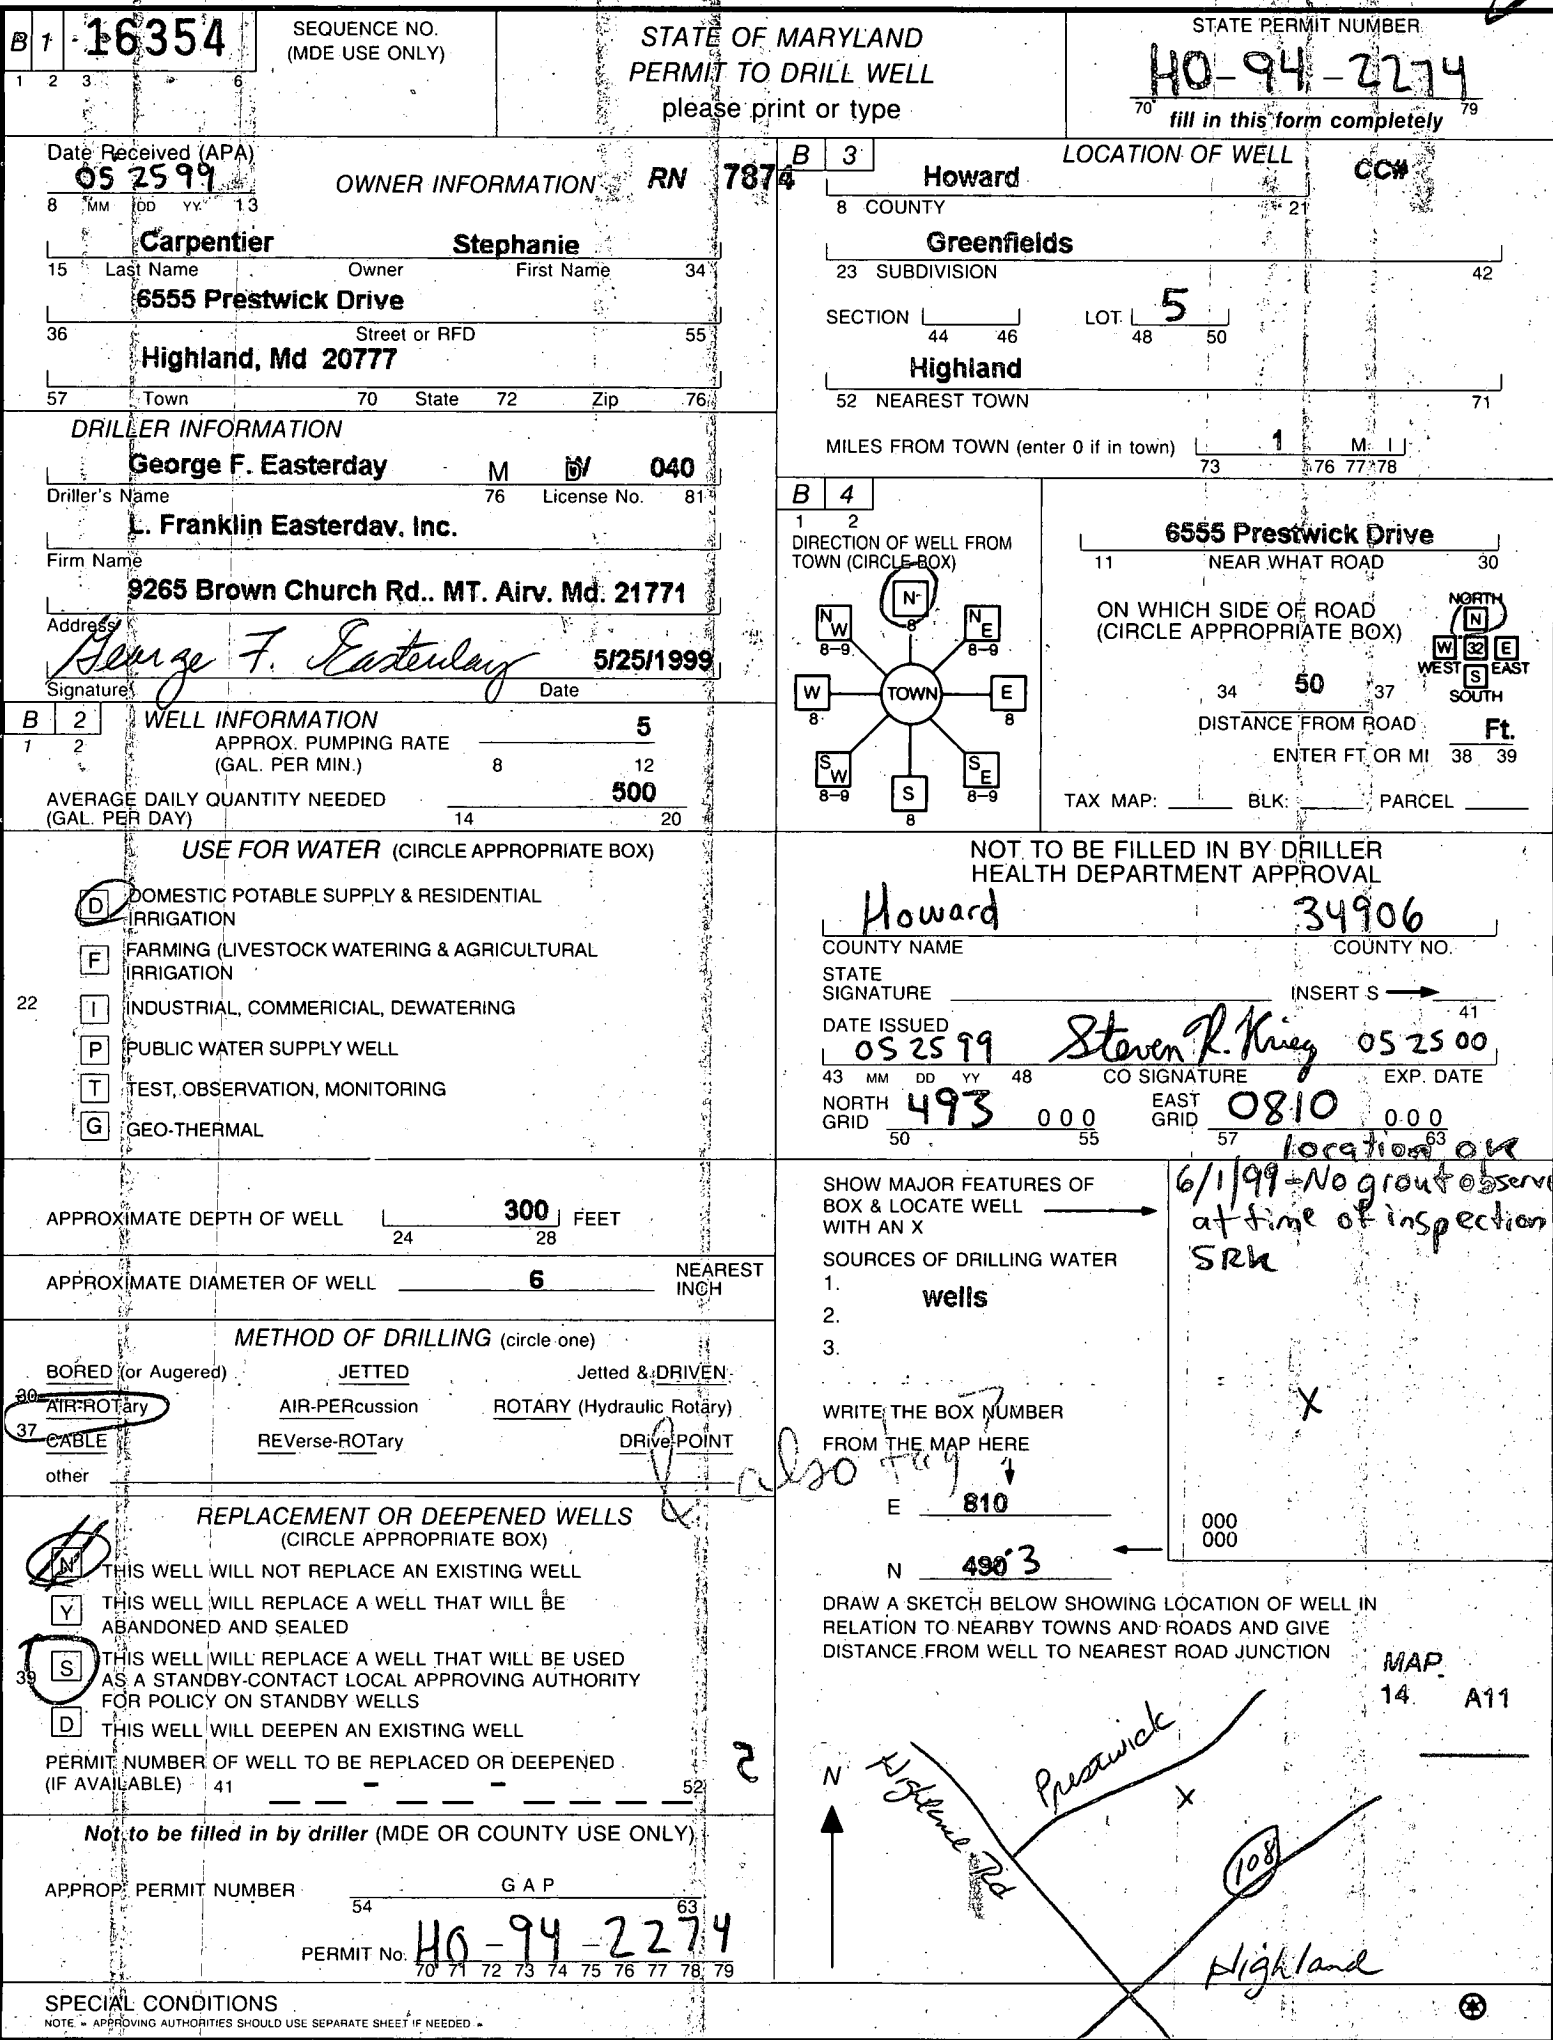 B 1 16354
1 2 3 6
SEQUENCE NO.
(MDE USE ONLY)
STATE OF MARYLAND
PERMIT TO DRILL WELL
please print or type
STATE PERMIT NUMBER
HO-94-2274
70 79
fill in this form completely
Date Received (APA)
05 25 99
8 MM DD YY 13
OWNER INFORMATION RN 7874
Carpentier Stephanie
15 Last Name Owner First Name 34
6555 Prestwick Drive
36 Street or RFD 55
Highland, Md 20777
57 Town 70 State 72 Zip 76
DRILLER INFORMATION
George F. Easterday M W 040
Driller's Name 76 License No. 81
L. Franklin Easterday, Inc.
Firm Name
9265 Brown Church Rd.. MT. Airv. Md. 21771
Address
George F. Easterday 5/25/1999
Signature Date
B 2 WELL INFORMATION
1 2
APPROX. PUMPING RATE 5
(GAL. PER MIN.) 8 12
AVERAGE DAILY QUANTITY NEEDED 500
(GAL. PER DAY) 14 20
USE FOR WATER (CIRCLE APPROPRIATE BOX)
D DOMESTIC POTABLE SUPPLY & RESIDENTIAL
IRRIGATION
F FARMING (LIVESTOCK WATERING & AGRICULTURAL
IRRIGATION
22 I INDUSTRIAL, COMMERICIAL, DEWATERING
P PUBLIC WATER SUPPLY WELL
T TEST, OBSERVATION, MONITORING
G GEO-THERMAL
APPROXIMATE DEPTH OF WELL 300 FEET
24 28
APPROXIMATE DIAMETER OF WELL 6 NEAREST
INCH
METHOD OF DRILLING (circle one)
BORED (or Augered) JETTED Jetted & DRIVEN
30 AIR-ROTary AIR-PERcussion ROTARY (Hydraulic Rotary)
37 CABLE REVerse-ROTary DRive-POINT
other
& also tag
REPLACEMENT OR DEEPENED WELLS
(CIRCLE APPROPRIATE BOX)
N THIS WELL WILL NOT REPLACE AN EXISTING WELL
Y THIS WELL WILL REPLACE A WELL THAT WILL BE
ABANDONED AND SEALED
39 S THIS WELL WILL REPLACE A WELL THAT WILL BE USED
AS A STANDBY-CONTACT LOCAL APPROVING AUTHORITY
FOR POLICY ON STANDBY WELLS
D THIS WELL WILL DEEPEN AN EXISTING WELL
PERMIT NUMBER OF WELL TO BE REPLACED OR DEEPENED
(IF AVAILABLE) 41 - - 52
Not to be filled in by driller (MDE OR COUNTY USE ONLY)
APPROP. PERMIT NUMBER GAP
54 63
PERMIT No. HO-94-2274
70 71 72 73 74 75 76 77 78 79
SPECIAL CONDITIONS
NOTE - APPROVING AUTHORITIES SHOULD USE SEPARATE SHEET IF NEEDED -
B 3 LOCATION OF WELL CC#
Howard
8 COUNTY 21
Greenfields
23 SUBDIVISION 42
SECTION LOT 5
44 46 48 50
Highland
52 NEAREST TOWN 71
MILES FROM TOWN (enter 0 if in town) 1 M I
73 76 77 78
B 4
1 2
DIRECTION OF WELL FROM
TOWN (CIRCLE BOX)
N
8
NW NE
8-9 8-9
W TOWN E
8 8
SW SE
8-9 S 8-9
8
6555 Prestwick Drive
11 NEAR WHAT ROAD 30
ON WHICH SIDE OF ROAD
(CIRCLE APPROPRIATE BOX)
NORTH
N
W 32 E
WEST S EAST
SOUTH
34 50 37
DISTANCE FROM ROAD Ft.
ENTER FT OR MI 38 39
TAX MAP: BLK: PARCEL
NOT TO BE FILLED IN BY DRILLER
HEALTH DEPARTMENT APPROVAL
Howard 34906
COUNTY NAME COUNTY NO.
STATE
SIGNATURE INSERT S
41
DATE ISSUED
05 25 99 Steven R. Krieg 05 25 00
43 MM DD YY 48 CO SIGNATURE EXP. DATE
NORTH GRID 493 000 EAST GRID 0810 000
50 55 57 63
location ok
6/1/99 - No grout observe
at time of inspection
SRK
SHOW MAJOR FEATURES OF
BOX & LOCATE WELL
WITH AN X
SOURCES OF DRILLING WATER
1. wells
2.
3.
X
WRITE THE BOX NUMBER
FROM THE MAP HERE
E 810
N 490 3
000
000
DRAW A SKETCH BELOW SHOWING LOCATION OF WELL IN
RELATION TO NEARBY TOWNS AND ROADS AND GIVE
DISTANCE FROM WELL TO NEAREST ROAD JUNCTION
MAP
14 A11
N
Highland Rd
Prestwick
X
108
Highland